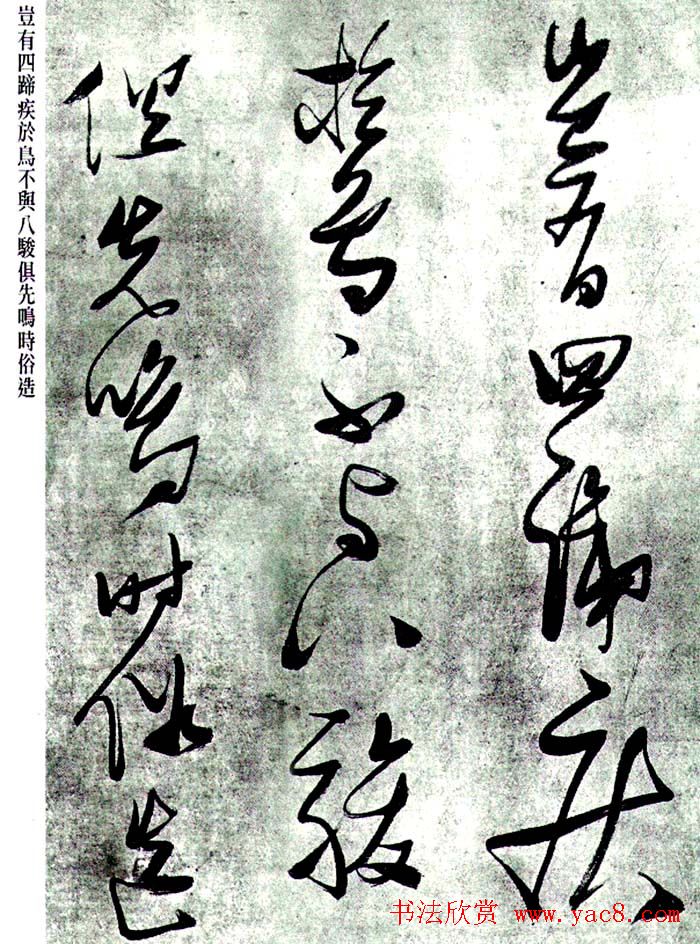 豈有四蹄疾
於鳥不與八駿
俱先鳴時俗造
豈有四蹄疾於鳥不與八駿俱先鳴時俗造
书法欣赏 www.yac8.com